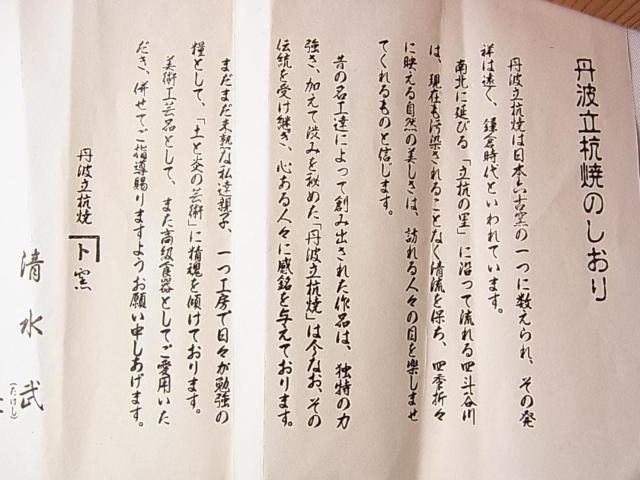 丹波立杭焼のしおり
丹波立杭焼は日本六古窯の一つに数えられ、その発
祥は遠く、鎌倉時代といわれています。
南北に延びる「立杭の里」に沿って流れる四斗谷川
は、現在も汚染されることなく清流を保ち、四季折々
に映える自然の美しさは、訪れる人々の目を楽しませ
てくれるものと信じます。
昔の名工達によって創み出された作品は、独特の力
強さ、加えて渋みを秘めた「丹波立杭焼」は今なお、その
伝統を受け継ぎ、心ある人々に感銘を与えております。
まだまだ未熟な私達親子、一つ工房で日々が勉強の
糧として、「土と炎の芸術」に精魂を傾けております。
美術工芸品として、また高級食器としてご愛用いた
だき、併せてご指導賜りますようお願い申しあげます。
丹波立杭焼 ト窯
清水武
(たけし)